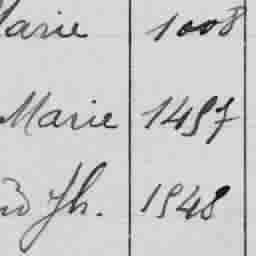 Marie 1008
Marie 1497
Jh. 1948